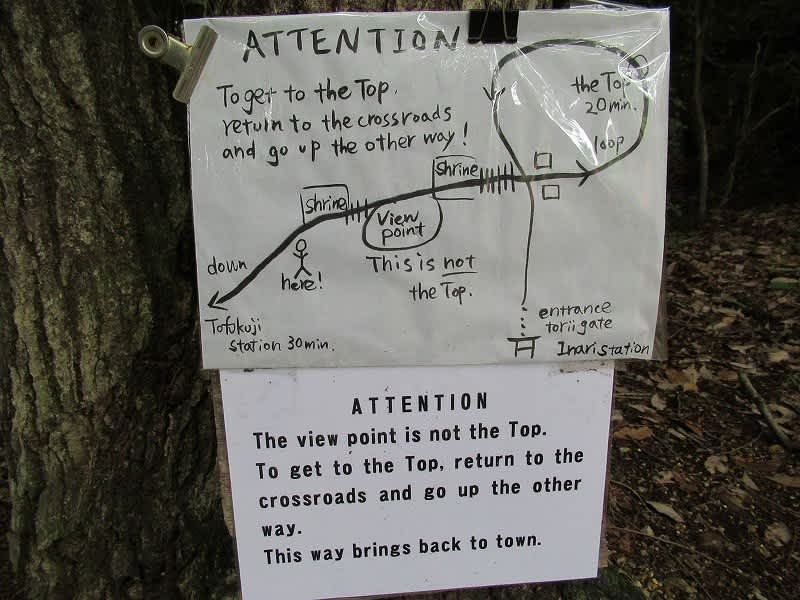 ATTENTION
To get to the Top,
return to the crossroads
and go up the other way!
the Top
20 min.
loop
Shrine
Shrine
View
point
This is not
the Top.
here!
down
Tofukuji
Station 30 min.
entrance
torii gate
Inari station
ATTENTION
The view point is not the Top.
To get to the Top, return to the
crossroads and go up the other
way.
This way brings back to town.